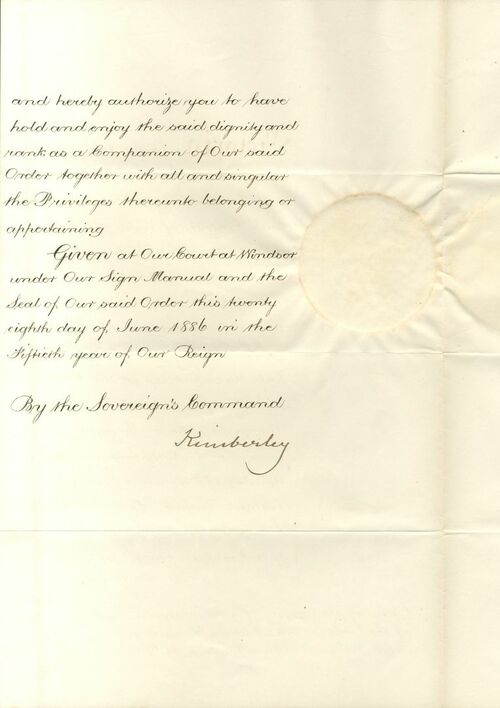 and hereby authorize you to have
hold and enjoy the said dignity and
rank as a Companion of Our said
Order together with all and singular
the Privileges thereunto belonging or
appertaining
Given at Our Court at Windsor
under Our Sign Manual and the
Seal of Our said Order this twenty
eighth day of June 1886 in the
Fiftieth year of Our Reign
By the Sovereign's Command
Kimberley